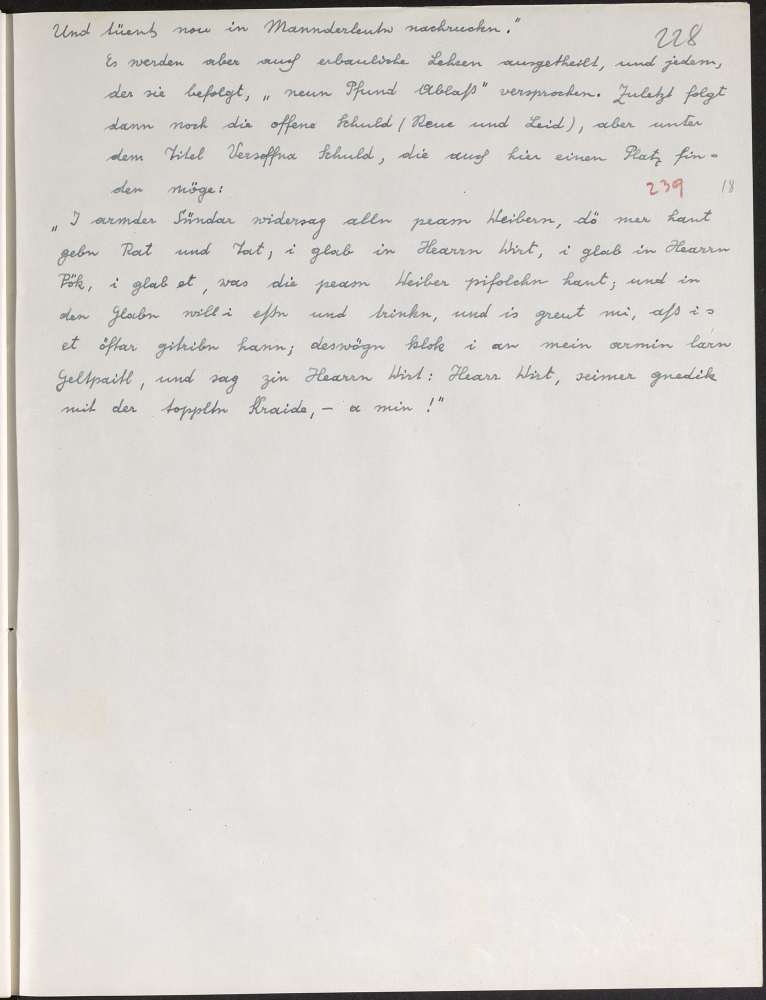 228
Und tüents nou in Mannderleutn nachruckn."
Es werden aber auch erbauliche Lehren ausgetheilt, und jedem,
der sie befolgt, „neun Pfund Ablaß" versprochen. Zuletzt folgt
dann noch die offene Schuld (Reue und Leid), aber unter
dem Titel Versoffna Schuld, die auch hier einen Platz fin-
den möge:
239 18
„I armder Sündar widersag alln peasn Weibern, dö mer hant
gebn Rat und Tat; i glab in Hearrn Wirt, i glab in Hearrn
Pök, i glab et, was die peasn Weiber pifolchn hant; und in
den Glabn will i eßn und trinkn, und is greut mi, aß i s
et öftar gitribn hann; deswögn klok i an mein armin larn
Geltpaitl, und sag zin Hearrn Wirt: Hearr Wirt, seimer gnedik
mit der toppltn Kraide, – a min!"